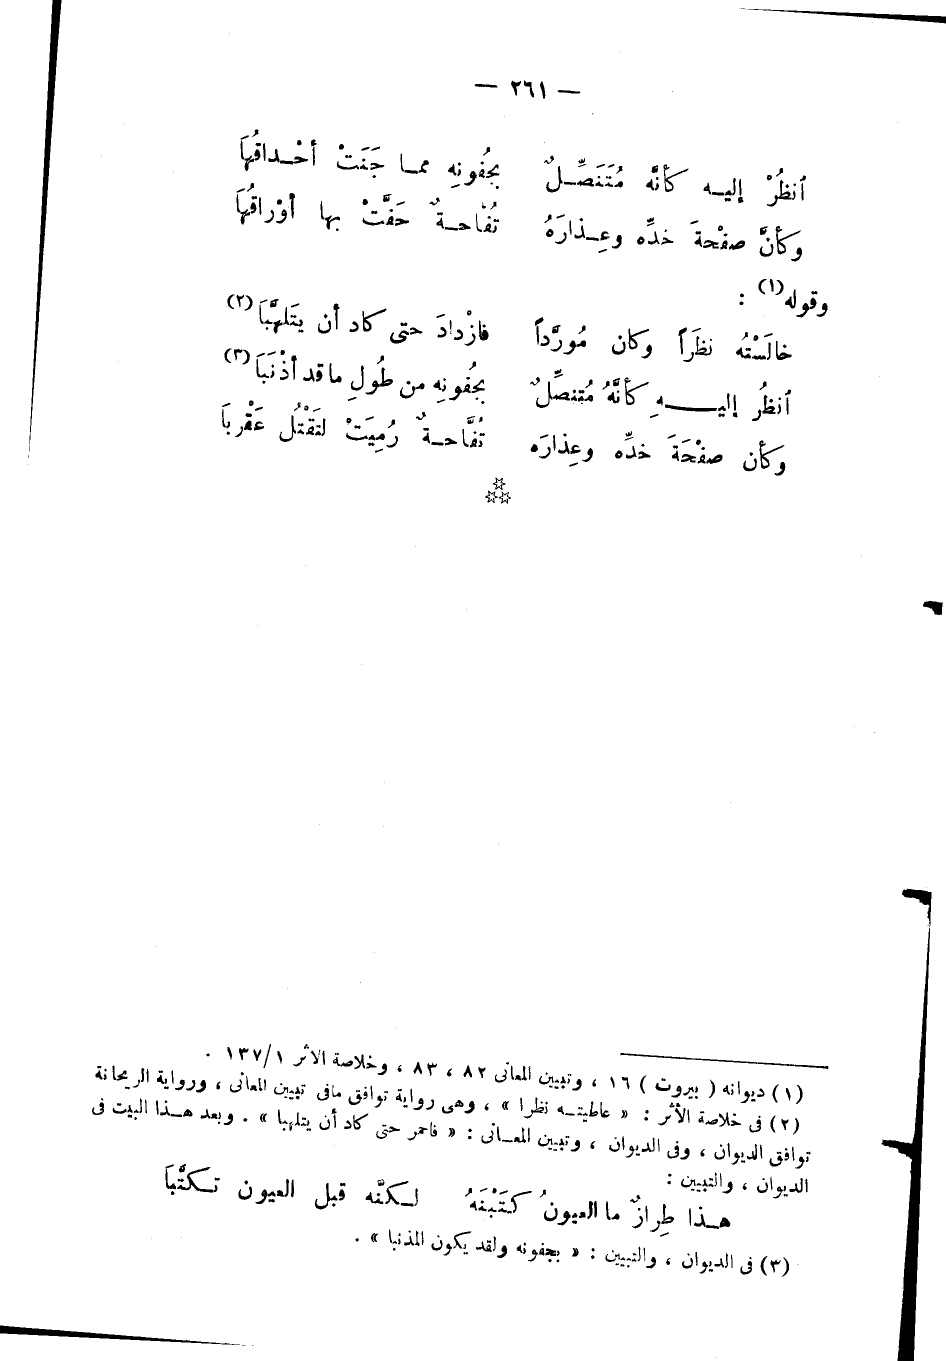 — ٢٦١ —
ٱنظُرْ إليـه كأنَّه مُتَنَصِّـلٌ    بجُفُونِه ممـا جَنَتْ أحْـداقُهَا
وكَأنَّ صفْحةَ خدِّه وعِـذارَهُ    تُفَّاحـةٌ حَفَّتْ بها أوْراقُهَا
وقوله(١) :
خالَسْتُه نظَراً وكان مُورَّداً    فازْدادَ حتى كاد أن يتَلهَّبَا(٢)
ٱنظُر إليـــهِ كأنَّهُ مُتنصِّلٌ    بجُفُونِه من طُولِ ما قد أذْنَبَا(٣)
وكأن صفْحَةَ خدِّه وعِذارَه    تُفَّاحـةٌ رُمِيَتْ لتَقْتُل عَقْربَا
(١) ديوانه ( بيروت ) ١٦ ، وتبيين المعانى ٨٢ ، ٨٣ ، وخلاصة الأثر ١/ ١٣٧ .
(٢) فى خلاصة الأثر : « عاطيتـه نظرا » ، وهى رواية توافق مافى تبيين المعانى ، ورواية الريحانة
توافق الديوان ، وفى الديوان ، وتبيين المعـانى : « فاحمر حتى كاد أن يتلهبا » . وبعد هـذا البيت فى
الديوان ، والتبيين :
هـذا طِرازٌ ما العيونُ كتَبْنَهُ    لـكنَّه قبل العيون تـكتَّبَا
(٣) فى الديوان ، والتبيين : « بجفونه ولقد يكون المذنبا » .